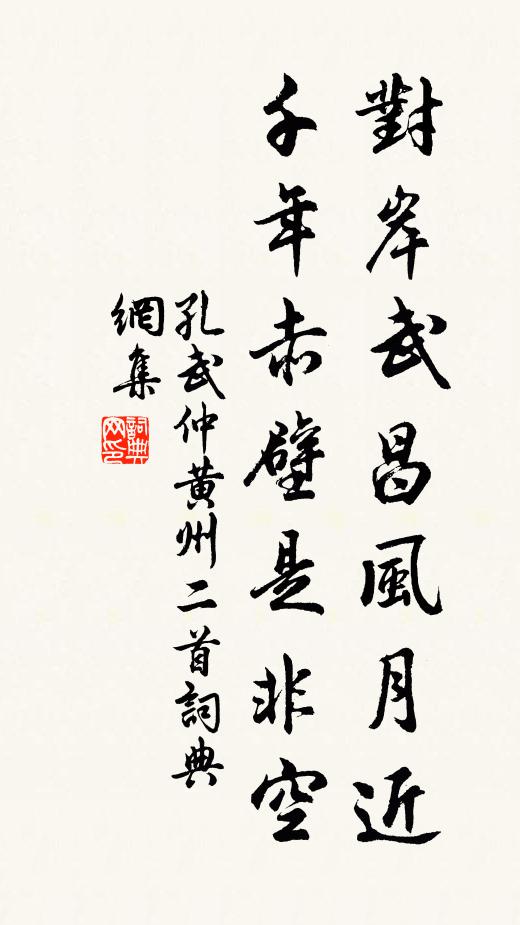 對岸武昌風月近
千年赤壁是非空
孔武仲黄州二首詞典
網集
詞典
网印